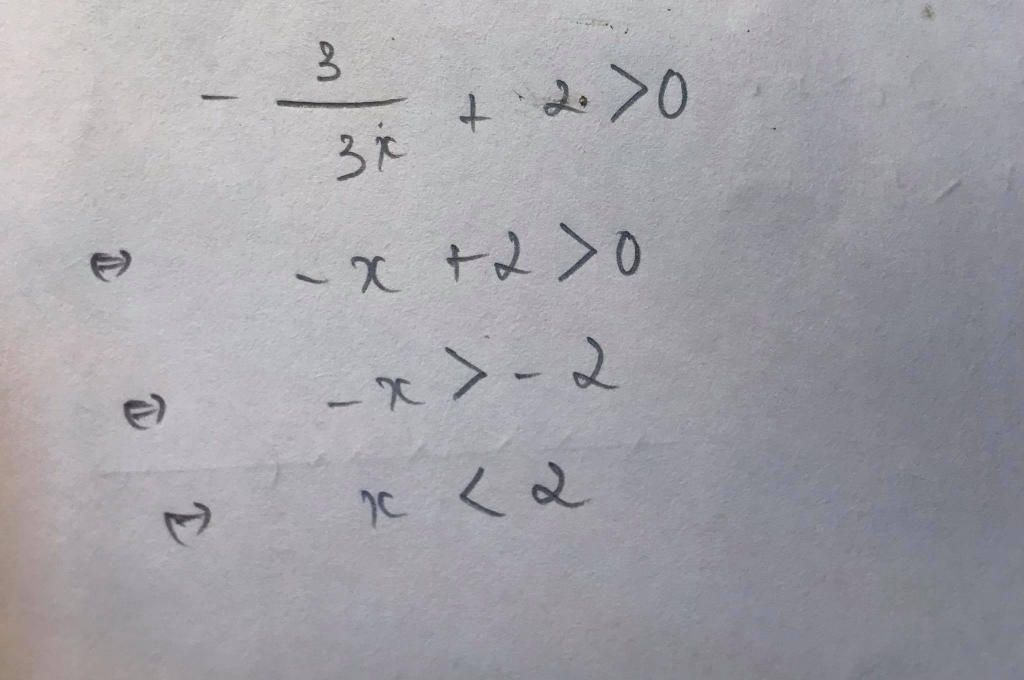 - 3/3x + 2 > 0
⇔ - x + 2 > 0
⇔ - x > - 2
⇔ x < 2